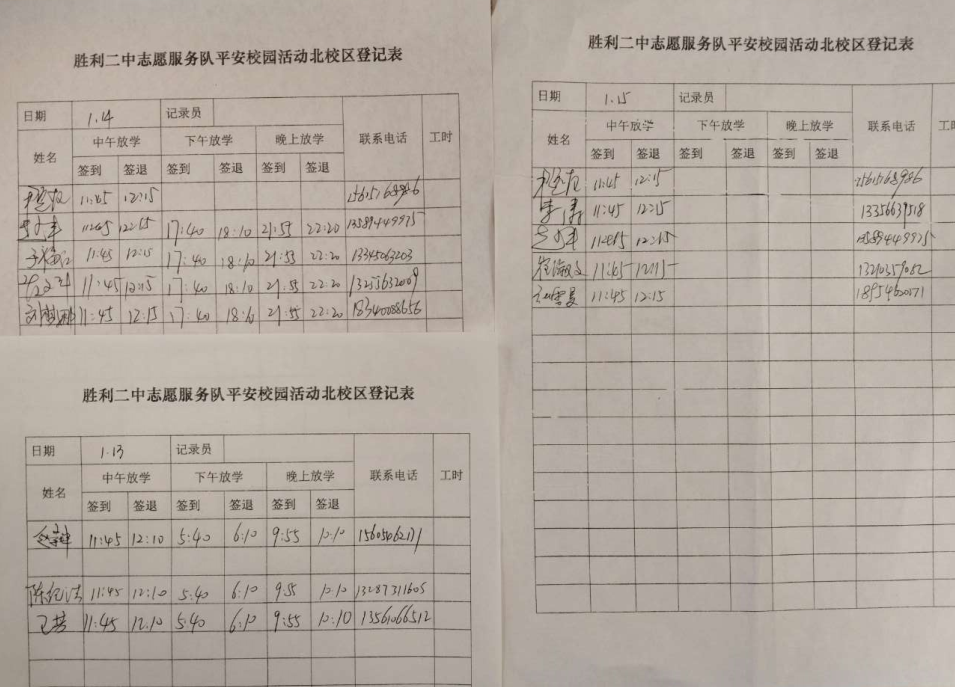 胜利二中志愿服务队平安校园活动北校区登记表
日期 1.14 记录员
姓名 中午放学 下午放学 晚上放学 联系电话 工时
签到 签退 签到 签退 签到 签退
11:45 12:15 15615768986
11:45 12:15 17:40 18:10 21:55 22:20 13589449975
11:45 12:15 17:40 18:10 21:55 22:20 13345063203
11:45 12:15 17:40 18:10 21:55 22:20
11:45 12:15 17:40 18:10 21:55 22:20 18340088656
胜利二中志愿服务队平安校园活动北校区登记表
日期 1.13 记录员
姓名 中午放学 下午放学 晚上放学 联系电话 工时
签到 签退 签到 签退 签到 签退
11:45 12:10 5:40 6:10 9:55 10:10
陈纪法 11:45 12:10 5:40 6:10 9:55 10:10 13287311605
卫芳 11:45 12:10 5:40 6:10 9:55 10:10 13561066512
胜利二中志愿服务队平安校园活动北校区登记表
日期 1.15 记录员
姓名 中午放学 下午放学 晚上放学 联系电话
签到 签退 签到 签退 签到 签退
11:45 12:15 15615768986
李涛 11:45 12:15 13356639518
11:45 12:15 13589449975
11:45 12:15 13210359052
11:45 12:15 18954620071